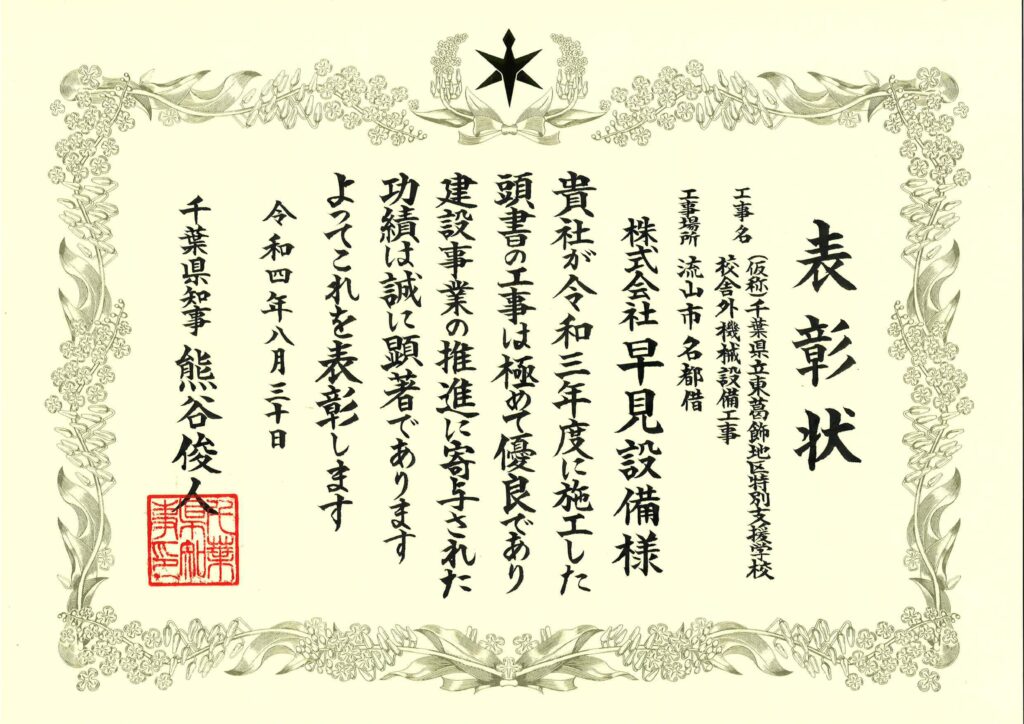 表彰状
工事名 (仮称)千葉県立東葛飾地区特別支援学校
校舎外機械設備工事
工事場所 流山市名都借
株式会社早見設備様
貴社が令和三年度に施工した
頭書の工事は極めて優良であり
建設事業の推進に寄与された
功績は誠に顕著であります
よってこれを表彰します
令和四年八月三十日
千葉県知事 熊谷俊人
千葉
県知
事印